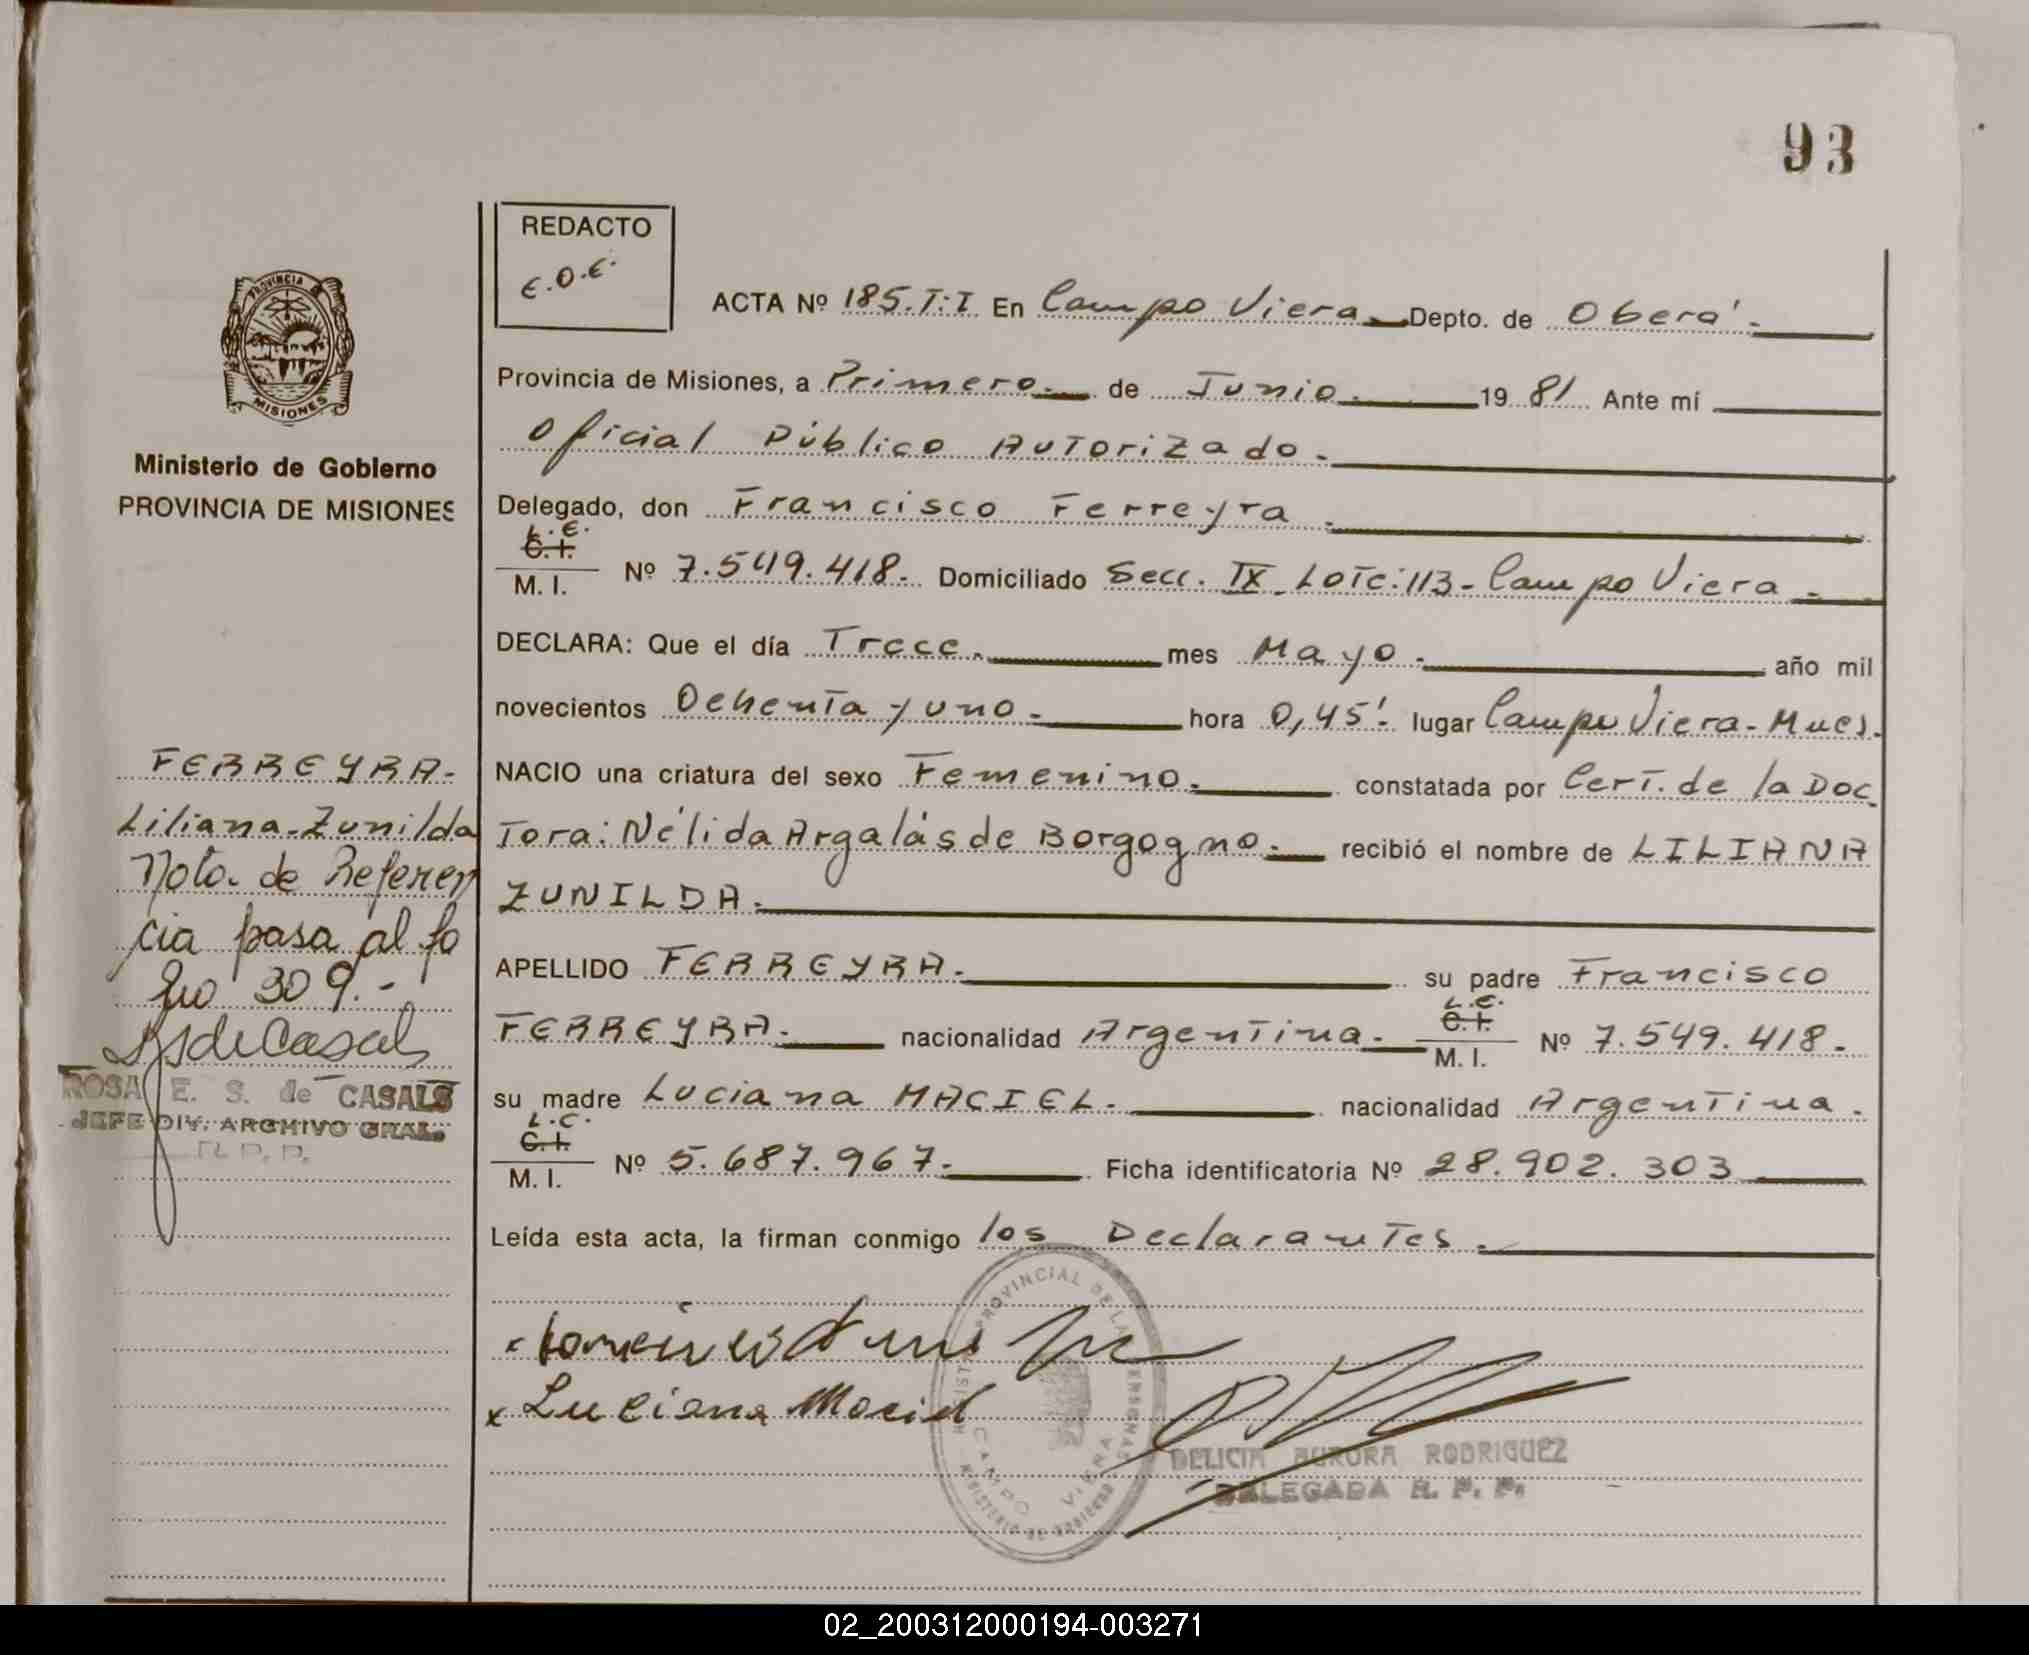 93
REDACTO
E.O.E.
ACTA Nº 185.T:I En Campo Viera Depto. de Oberá.
Provincia de Misiones, a Primero. de Junio. 1981 Ante mí
Oficial Público Autorizado.
Delegado, don Francisco Ferreyra.
L.E.
C.I.
M. I. Nº 7.549.418. Domiciliado Secc. IX. Lote:113- Campo Viera.
DECLARA: Que el día Trece. mes Mayo. año mil
novecientos Ochenta y uno. hora 0,45'. lugar Campo Viera - Mnes.
NACIO una criatura del sexo Femenino. constatada por Cert. de la Doc
tora: Nélida Argalás de Borgogno. recibió el nombre de LILIANA
ZUNILDA.
APELLIDO FERREYRA. su padre Francisco
FERREYRA. nacionalidad Argentina. L.E. C.I. M. I. Nº 7.549.418.
su madre Luciana MACIEL. nacionalidad Argentina.
L.C.
C.I.
M. I. Nº 5.687.967. Ficha identificatoria Nº 28.902.303
Leída esta acta, la firman conmigo los Declarantes.
x Luciana Maciel
REGISTRO PROVINCIAL DE LAS PERSONAS
CAMPO VIERA
MINISTERIO DE GOBIERNO
DELICIA AURORA RODRIGUEZ
DELEGADA R. P. P.
PROVINCIA
MISIONES
Ministerio de Gobierno
PROVINCIA DE MISIONES
FERREYRA-
Liliana-Zunilda
Nota de Referen
cia pasa al fo
lio 309.-
RSdeCasals
ROSA E. S. de CASALS
JEFE DIV. ARCHIVO GRAL.
R. P. P.
02_200312000194-003271